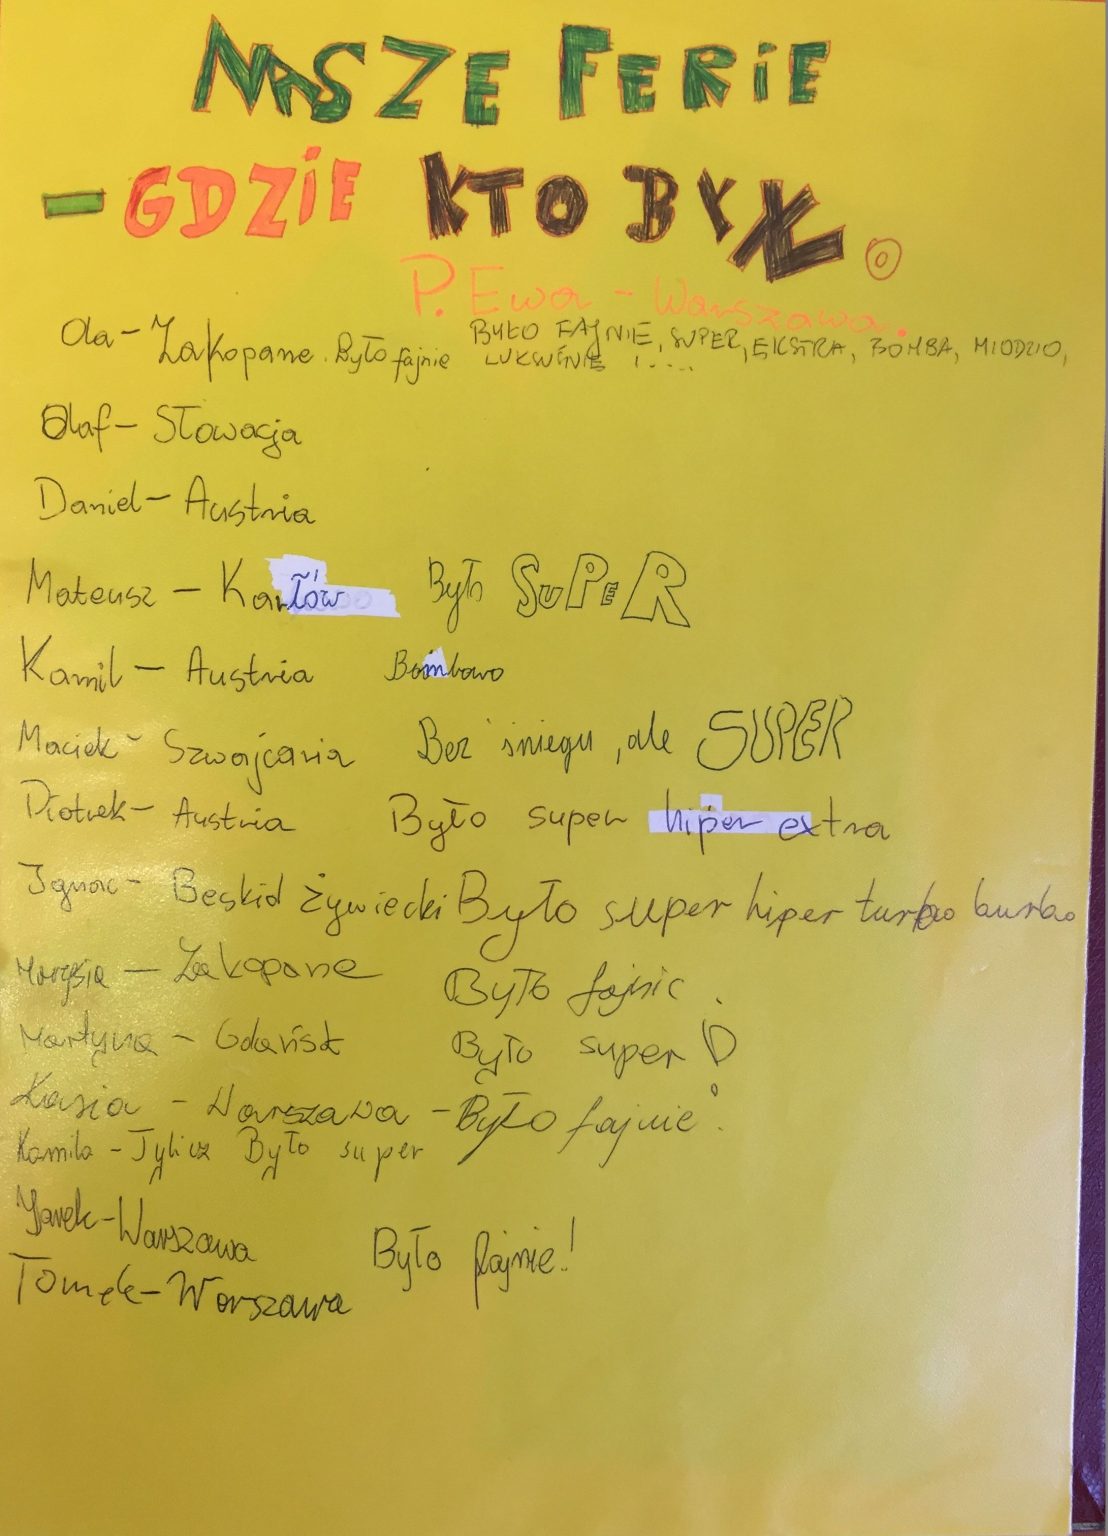 NASZE FERIE
- GDZIE KTO BYŁ.
P. Ewa - Warszawa.
Ola - Zakopane. Było fajnie BYŁO FAJNIE, SUPER, EKSTRA, BOMBA, MIODZIO,
LUKWŚNIE !....
Olaf - Słowacja
Daniel - Austria
Mateusz - Karłów Było SUPER
Kamil - Austria Bombowo
Maciek - Szwajcaria Bez śniegu, ale SUPER
Piotrek - Austria Było super hiper extra
Ignac - Beskid żywiecki Było super hiper turbo burbo
Marysia - Zakopane Było fajnie.
Martyna - Gdańsk Było super!
Kasia - Warszawa - Było fajnie!
Kamila - Tylicz Było super
Jarek - Warszawa
Było fajnie!
Tomek - Warszawa